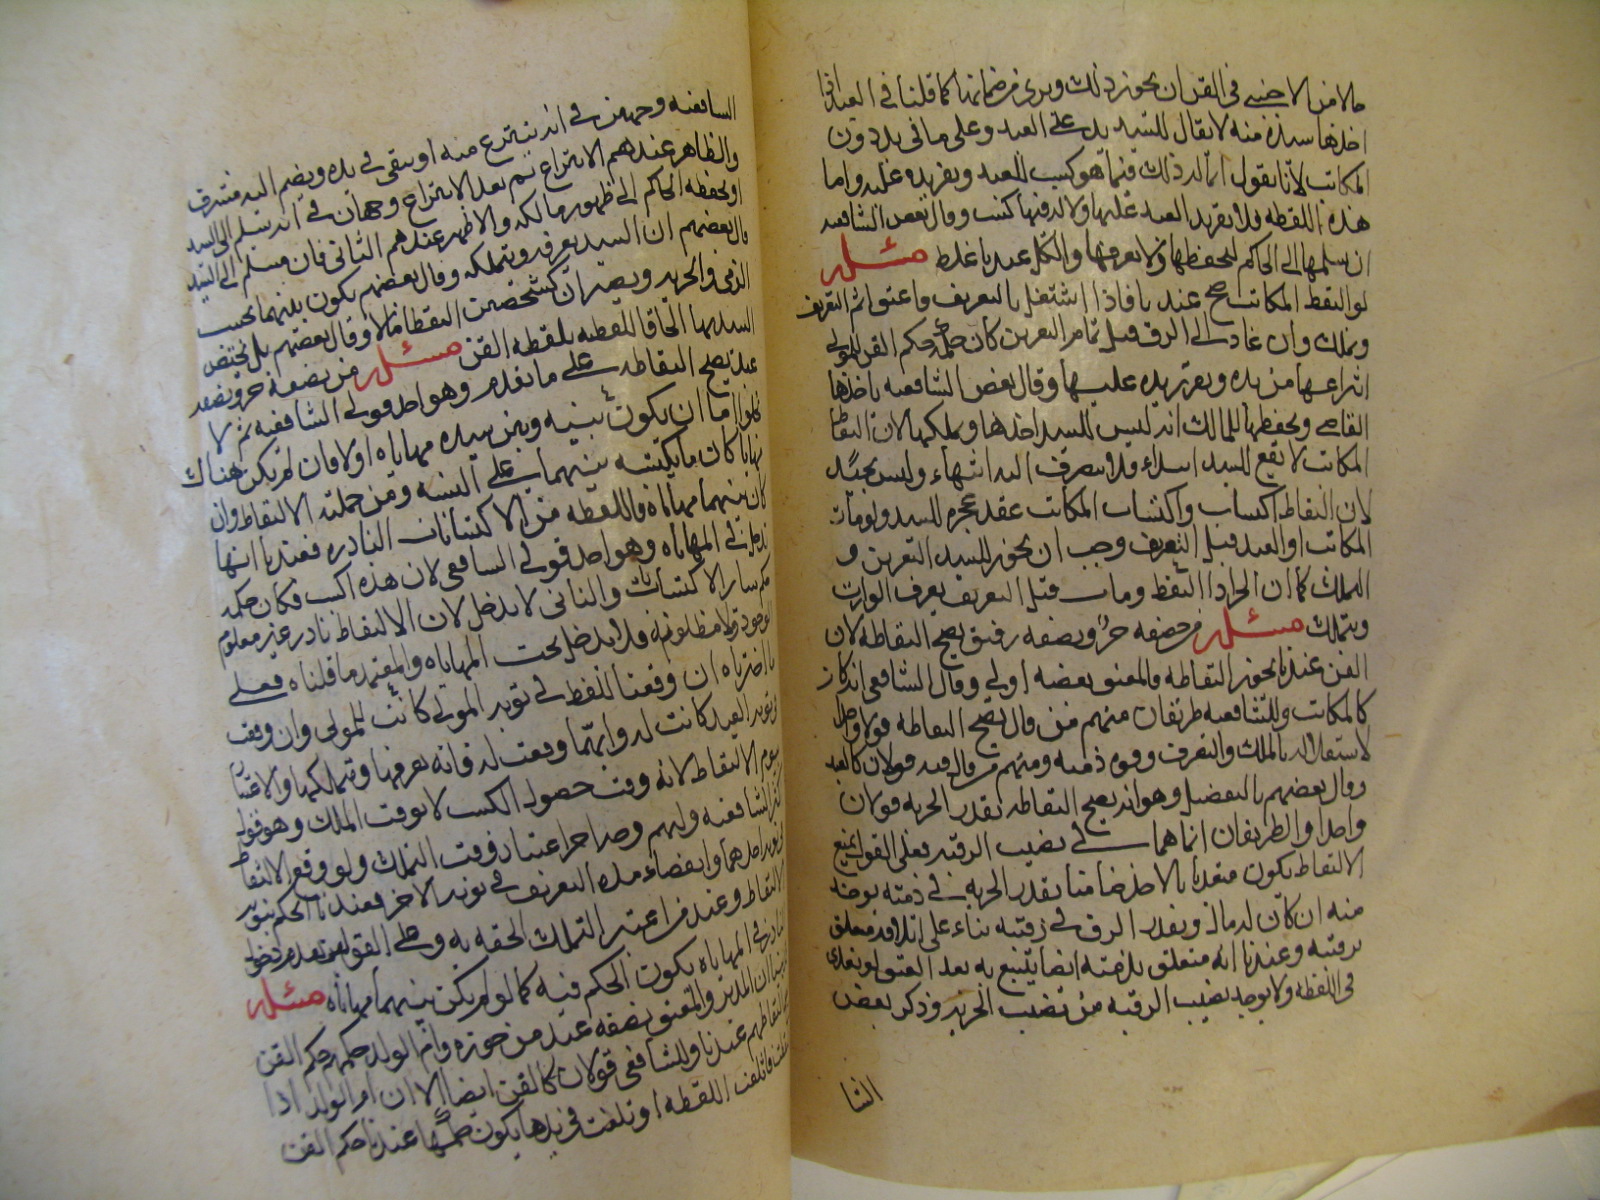 حالا من الاجنبي في القن ان يجوز ذلك ويبرئ من ضمانها كما قلنا في العبد اذا
اخذها سيده منه لا يقال للسيد يد على العبد وعلى ما في يده دون
المكاتب لانا نقول انما له ذلك فيما هو كسب للعبد وتفريده عليه واما
هذه اللقطه فلا تفريد العبد عليها ولا له فيها كسب وقال بعض الشافعيه
ان سلمها الى الحاكم ليحفظها ولا يعرفها والكل عندنا غلط مسئله
لو التقط المكاتب صح عندنا فاذا اشتغل بالتعريف واعتق اتم التعريف
وتملك وان عاد الى الرق قبل تمام التعريف كان حكمه حكم القن للمولى
انتزاعها من يده وتقرير يده عليها وقال بعض الشافعيه ياخذها
القاضي ويحفظها للمالك انه ليس للسيد اخذها وتملكها لان التقاط
المكاتب لا يقع للسيد ابتداء فلا ينصرف اليه انتهاء وليس بجيد
لان التقاط اكساب واكتساب المكاتب عند عجزه للسيد ولو مات
المكاتب او العبد قبل التعريف وجب ان يجوز للسيد التعريف و
التملك كما ان الحر اذا التقط ومات قبل التعريف يعرف الوارث
ويتملك مسئله من نصفه حر ونصفه رقيق يصح التقاطه لان
القن عندنا يجوز التقاطه والمعتق بعضه اولى وقال الشافعي انه كان
كالمكاتب وللشافعيه طريقان منهم من قال يصح التقاطه قولا واحدا
لاستقلاله بالملك والتصرف وقوه ذمته ومنهم من قال فيه قولان كالعبد
وقال بعضهم بالتفصيل وهو انه يصح التقاطه بقدر الحريه قولان
واحدا والطريقان انما هما في نصيب الرقيه فعلى القول بمنع
الالتقاط يكون متعديا بالاخذ ضامنا بقدر الحريه في ذمته يوخذ
منه ان كان له مال وبقدر الرق في رقبته بناء على اتلافه متعلق
برقبته وعندنا انه متعلق بذمته ايضا يتبع به بعد العتق لو تعدى
في اللقطه ولا يوجد نصيب الرقبه من نصيب الحريه وذكر بعض
الشا
الشافعيه وجهين في انه ينتزع منه او يبقى في يده ويضم اليه مشرف
والظاهر عندهم الانتزاع ثم بعد الانتزاع وجهان في انه يسلم الى السيد
او يحفظه الحاكم الى ظهور مالكه والاظهر عندهم الثاني فان سلم الى السيد
قال بعضهم ان السيد يعرفه ويتملكه وقال بعضهم يكون بينهما بحسب
الرق والحريه ويصيران كشخصين التقطا مالا وقال بعضهم بل يختص
السيد بها الحاقا للقطته بلقطه القن مسئله من نصفه حر ونصفه
عبد يصح التقاطه على ما تقدم وهو احد قولي الشافعيه ثم لا
يخلوا اما ان يكون بينه وبين سيده مهاياه او لا فان لم يكن هناك
مهاياه كان ما يكتسبه بينهما على النسبه ومن جملته الالتقاط وان
كان بينهما مهاياه فاللقطه من الاكتسابات النادره فعندنا انها
تدخل في المهاياه وهو احد قولي الشافعي لان هذه اكسب فكان حكمه
حكم ساير الاكتسابات والثاني لا يدخل لان الالتقاط نادر غير معلوم
الوجود ولا مظنونه فلا يدخل تحت المهاياه والمعتمد ما قلناه فعلى
ما اخترناه ان وقعت اللقطه في نوبه المولى كانت للمولى وان وقعت
في نوبه العبد كانت له وايهما وقعت له فانه يعرفها ويتملكها والاعتبار
بيوم الالتقاط لانه وقت حصول الكسب لا بوقت الملك وهو قول
اكثر الشافعيه ولهم وجه اخر اعتبار وقت التملك ولو وقع الالتقاط
في نوبه احدهما وانقضاء مده التعريف في نوبه الاخر فعندنا الحكم بنوبه
الالتقاط وعند من اعتبر التملك الحقه به وعلى القول بعدم دخول
النادر في المهاياه يكون الحكم فيه كما لو لم يكن بينهما مهاياه مسئله
ان المدبر والمعتق بصفه عبد من حوزه وام الولد حكمهم حكم القن
التقاطهم عندنا وللشافعي قولان كالقن ايضا الا ان ام الولد اذا
التقطت فاتلفت اللقطه او تلفت في يدها يكون حكمها عندنا حكم القن